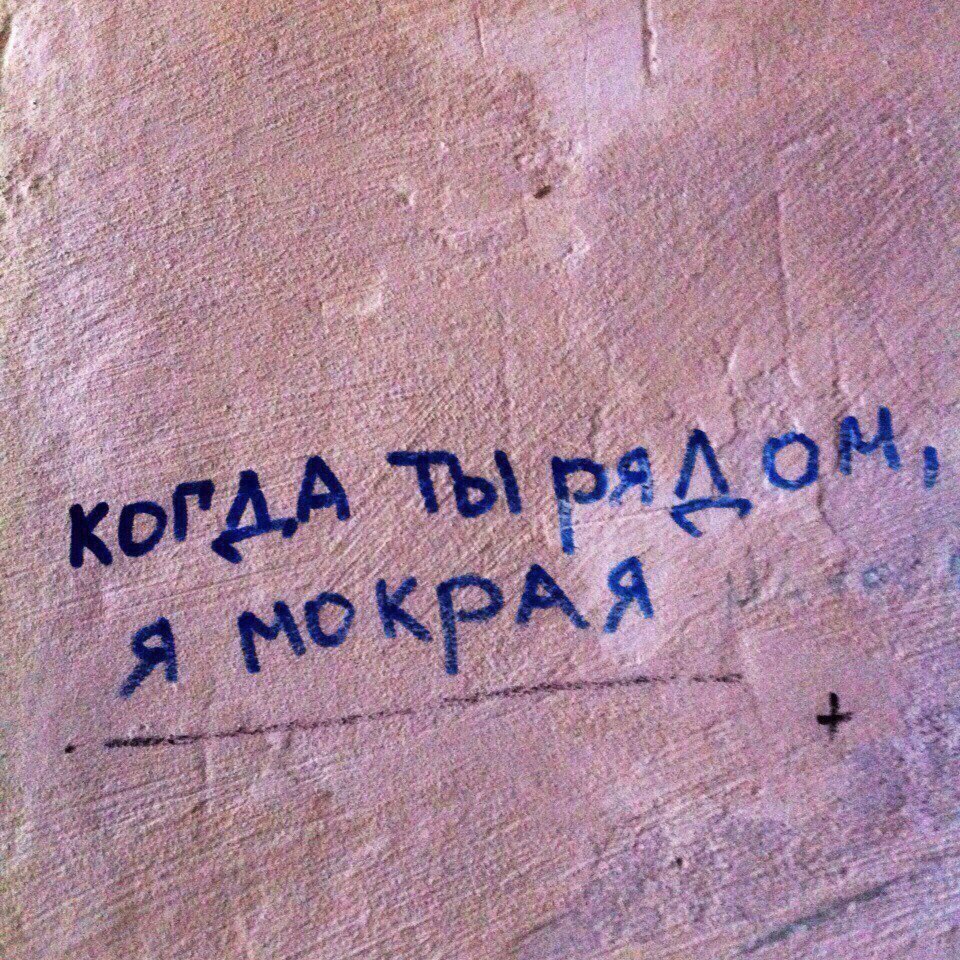 когда ты рядом,
я мокрая
+